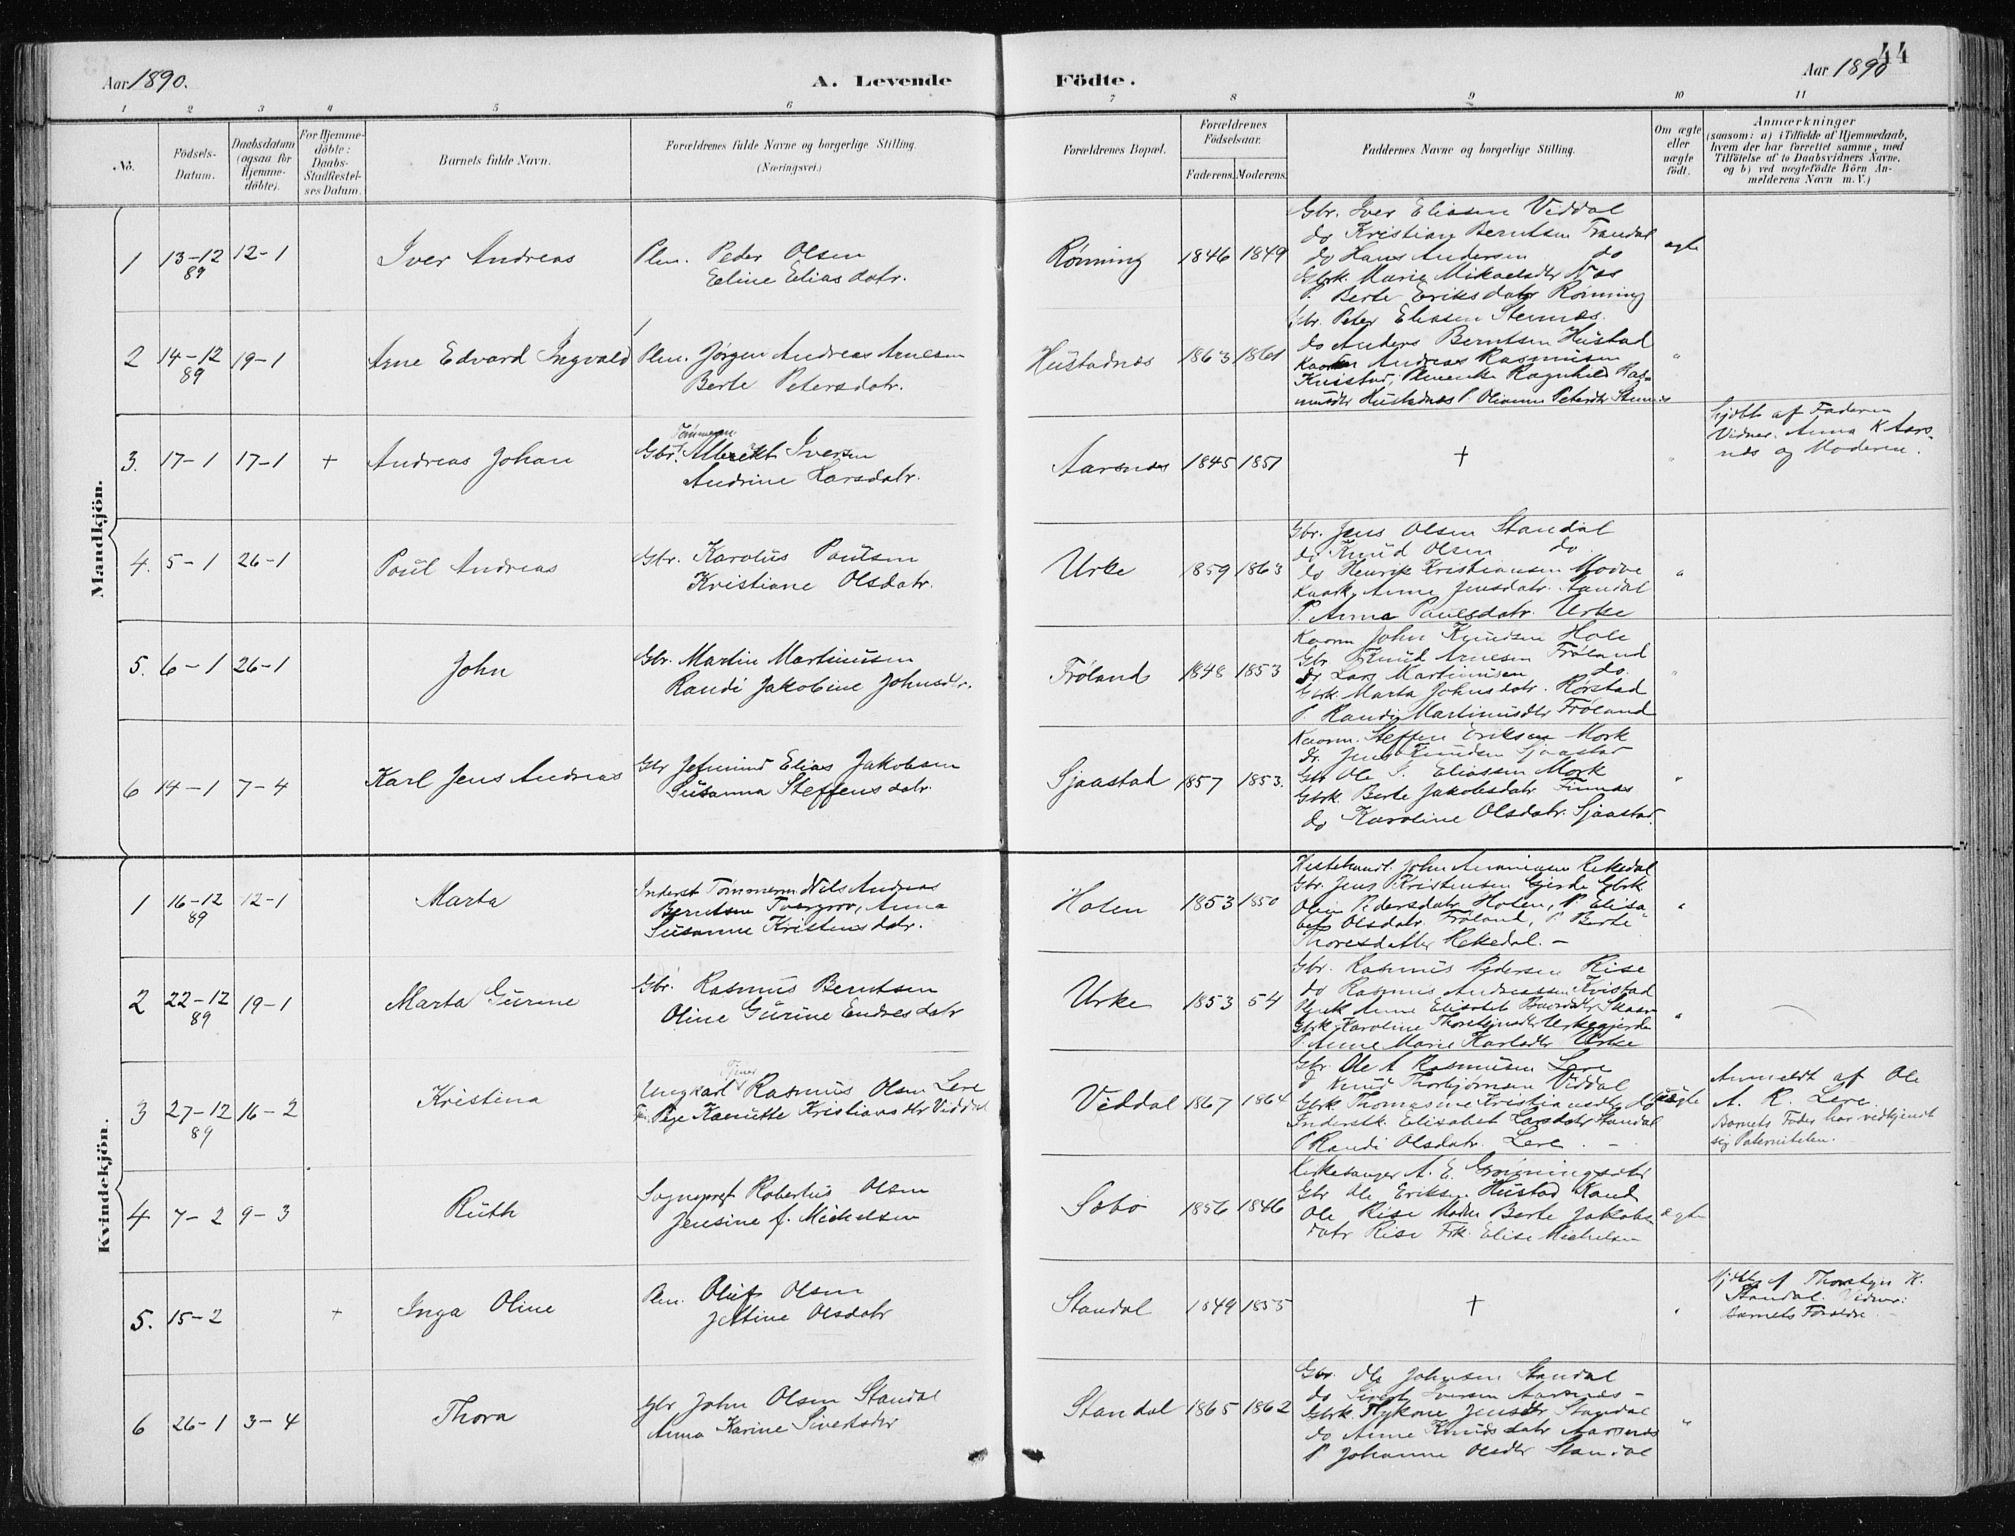 44
Aar 1890. A. Levende Födte. Aar 1890
1 2 3 4 5 6 7 8 9 10 11
No. Födsels-Datum. Daabsdatum (ogsaa for Hjemme-döbte). For Hjemme-döbte: Daabs-Stadfæstel-ses Datum. Barnets fulde Navn. Forældrenes fulde Navne og borgerlige Stilling. (Næringsvei.) Forældrenes Bopæl. Forældrenes Födselsaar. Faderens. Moderens. Faddernes Navne og borgerlige Stilling. Om ægte eller uægte födt. Anmærkninger (saasom: a) i Tilfælde af Hjemmedaab, hvem der har forrettet samme, med Tilföielse af to Daabsvidners Navne, og b) ved uægtefödte Börn An-melderens Navn m. V.)
Mandkjön.
1 13-12 89 12-1 Iver Andreas Plm. Peder Olsen
Eline Eliasdatr. Rönning 1846 1849 ægte
Gbr. Iver Eliasen Viddal
do Kristian Berntsen Trandal
do Hans Andersen do
Gbrk. Marie Mikaelsdtr Næs
P. Berte Eriksdatr Rönning
2 14-12 89 19-1 Arne Edvard Ingvald Plm. Jörgen Andreas Arnesen
Berte Petersdatr. Hustadnæs 1863 1861 "
Gbr. Peter Eliasen Stennæs.
do Anders Berntsen Hustad
Andreas Rasmusen
Ragnhild Ras-
musdtr Hustadnæs P. Olianne Petersdtr Stennæs
3. 17-1 17-1 + Andreas Johan Tömmerm.
Gbr. Albrekt Iversen
Andrine Larsdatr. Aarsnes 1845 1851 + "
hjdbt af Faderen
Vidner. Anna K Aars-
nes og Moderen.
4. 5-1 26-1 Poul Andreas Gbr. Karolus Poulsen
Kristiane Olsdatr. Urke 1859 1863 "
Gbr. Jens Olsen Standal
do Knud Olsen do.
do Henrik Kristiansen Moove
Anne Jensdatr. Standal
P. Anna Paulsdatr. Urke
5. 6-1 26-1 John Gbr. Martin Martinusen
Randi Jakobine Johnsdtr. Fröland 1848 1853 "
Kaarm John Knudsen Hole
Gbr Knud Arnesen Fröland
do Lars Martinusen do.
Gbrk. Marta Johnsdatr. Rörstad
P. Randi Martinusdtr Fröland
6 14-1 7-4 Karl Jens Andreas Gbr Jetmund Elias Jakobsen
Susanna Steffensdatr. Sjaastad 1857 1853. "
Kaarm. Steffen Eriksen Mork
do. Jens Knudsen Sjaastad
Gbr Ole S. Eliassen Mork
Gbrk. Berte Jakobsdatr Finnes
do Karoline Olsdatr. Sjaastad.
Kvindekjön.
1 16-12 89 12-1 Marta Inderst Tömmerm. Nils Andreas
Berntsen Tvergrov, Anna
Susanne Kristensdatr. Holen 1853 1850 "
Hestehandl. John Rekedal
Gbr. Jens Kristensen Gjerde Gbrk
Oline Pedersdatr Holen, P. Elisa-
bet Olsdatr. Fröland, P. Berte
Thoresdatter Rekedal. -
2 22-12 89 19-1 Marta Gurine Gbr. Rasmus Berntsen
Oline Gurine Endresdatr Urke 1853 54 "
Gbr. Rasmus Pedersen Rise
do Rasmus Andreassen Kvistad
Anne Elisabet Skaar
Gbrk Karoline Urkegjerde
P. Anne Marie Karlsdtr Urke
3 27-12 89 16-2 Kristina Tjener
Ungkarl Rasmus Olsen Lere
Pige Kanutte Kristiansdtr Viddal Viddal 1867 1864 uægte
Gbr Ole A Rasmusen Lere
do Knud Thorbjörnsen Viddal
Gbrk. Thomasine Kristiansdtr do
Inderstk. Elisabet Larsdatr Standal
P. Randi Olsdatr. Lere. -
Anmeldt af Ole
A. R. Lere.
Barnets Fader har vedkjendt
sig Paterniteten.
4 7-2 9-3 Ruth Sognepræst Robertus Olsen
Jensine f. Michelsen Sæbö 1856 1846 ægte
Kirkesanger A. E. Grönningsæter
Gbr Ole Eriksen Hustad Kand
Ole Rise Berte Jakobs-
datr Rise Frk. Elise Michelsen
5. 15-2 + Inga Oline Plm. Oluf Olsen
Jettine Olsdatr Standal 1849 1855 + "
hjdbt af Thorstein K.
Standal. Vidner:
Barnets Forældre. -
6 26-1 3-4 Thora Gbr John Olsen Standal
Anna Karine Sivertsdtr Standal 1865 1862 "
Gbr. Ole Johnsen Standal
do Sivert Iversen Aarsnes -
Gbrk. Jensdtr Standal
do Anne Knudsdatr Aarsnes
P Johanne Olsdtr Standal